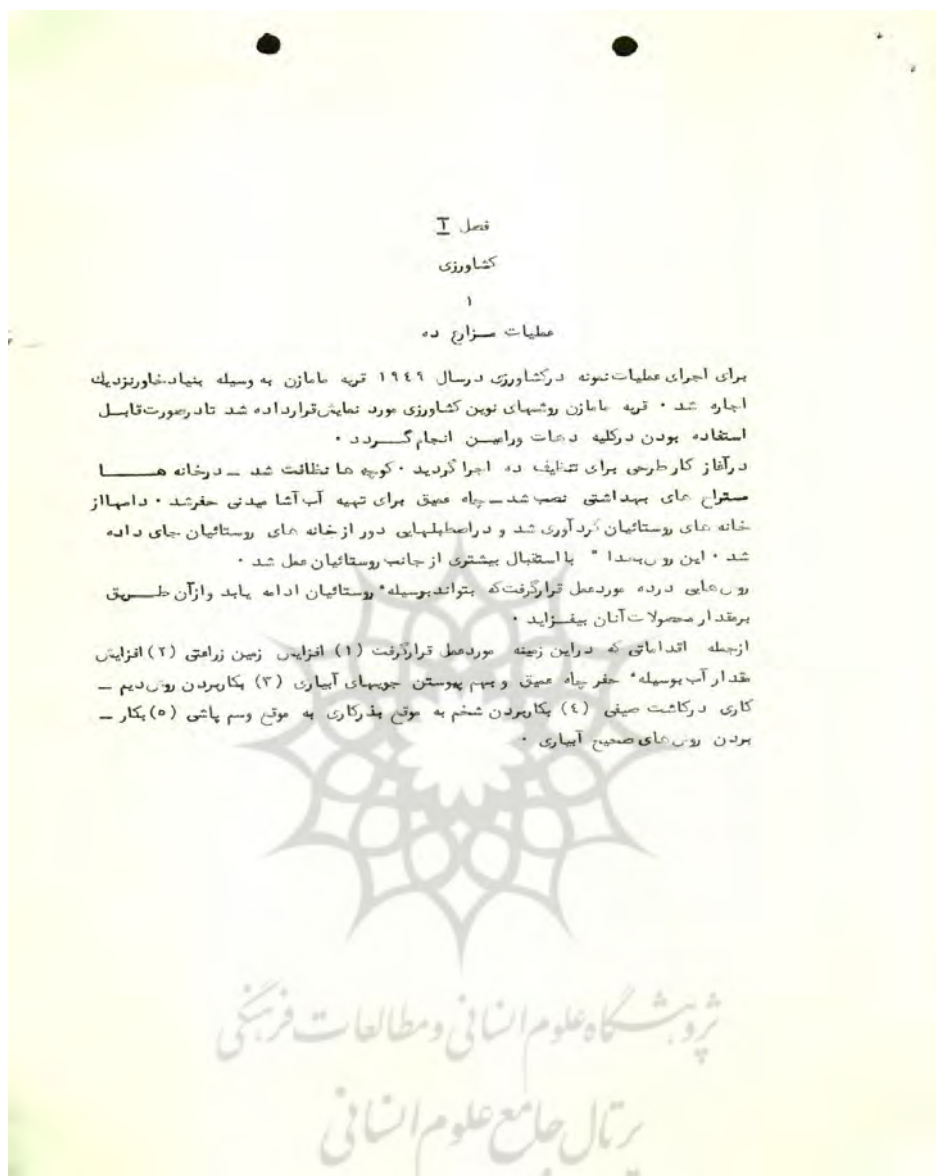 فصل I
کشاورزی
۱
عملیات مزارع ده
برای اجرای عملیات نمونه درکشاورزی درسال ۱۹٤۹ قریه مامازن به وسیله بنیاد خاورنزدیک
اجاره شد . قریه مامازن روشهای نوین کشاورزی مورد نمایش قرارداده شد تادرصورت قابل
استفاده بودن درکلیه دهات ورامین انجام گردد .
درآغاز کار طرحی برای تنظیف ده اجرا گردید . کوچه ها نظافت شد ــ درخانه ها
مستراح های بهداشتی نصب شد ــ چاه عمیق برای تهیه آب آشامیدنی حفرشد . دامهااز
خانه های روستائیان گردآوری شد و دراصطبلهایی دور از خانه های روستائیان جای داده
شد . این روش بعدا " بااستقبال بیشتری از جانب روستائیان عمل شد .
روشهایی درده موردعمل قرارگرفت که بتواندبوسیله ٔ روستائیان ادامه یابد وازآن طریق
برمقدار محصولات آنان بیفزاید .
ازجمله اقداماتی که دراین زمینه موردعمل قرارگرفت (۱) افزایش زمین زراعتی (۲) افزایش
مقدار آب بوسیله ٔ حفر چاه عمیق و بهم پیوستن جویهای آبیاری (۳) بکاربردن روش دیم ــ
کاری درکاشت صیفی (٤) بکاربردن شخم به موقع بذرکاری به موقع وسم پاشی (٥) بکار ــ
بردن روش های صحیح آبیاری .
پژوهشگاه علوم انسانی و مطالعات فرهنگی
پرتال جامع علوم انسانی